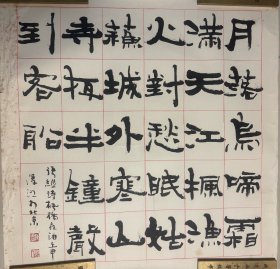 月落烏啼霜
滿天江楓漁
火對愁眠姑
蘇城外寒山
寺夜半鐘聲
到客船
張繼詩楓橋夜泊